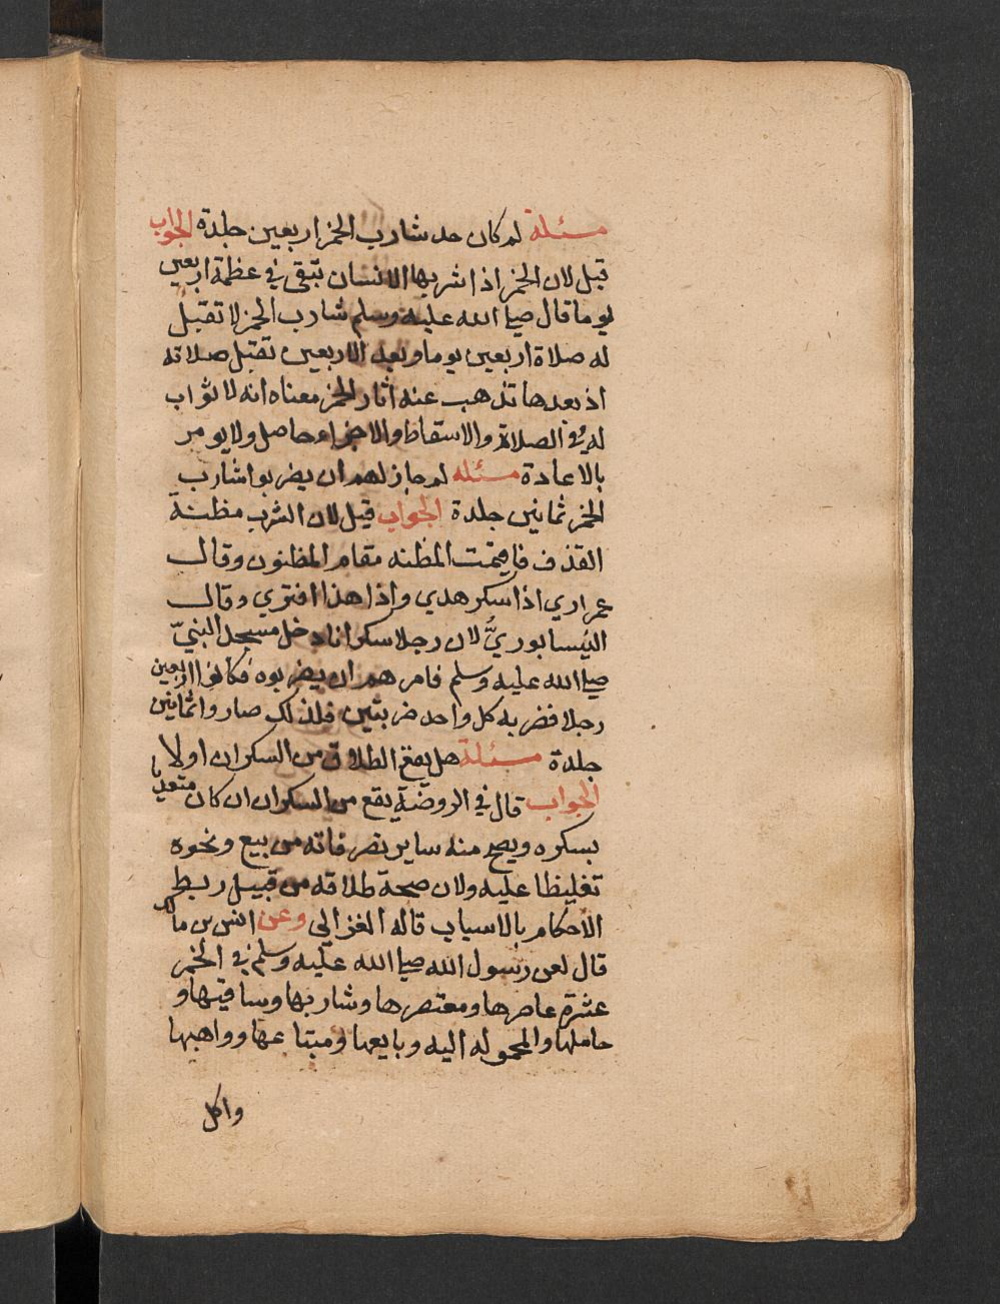 مسئلة لم كان حد شارب الخمر اربعين جلدة الجواب
قيل لان الخمر اذا شربها الانسان تبقى في عظمة اربعين
يوما قال صلى الله عليه وسلم شارب الخمر لا تقبل
له صلاة اربعين يوما وبعد الاربعين تقبل صلاته
اذ بعدها تذهب عنه اثار الخمر معناه انه لا ثواب
له في الصلاة والاسقاط والاجزاء حاصل ولا يومر
بالاعادة مسئله لم جاز لهم ان يضربوا شارب
الخمر ثمانين جلدة الجواب قيل لان الشرب مظنة
القذف فاقيمت المظنه مقام المظنون وقال
عمر اري اذا سكر هدي واذا هذا افتري وقال
النيسابوريُّ لان رجلا سكرانا دخل مسجد النبيّ
صلى الله عليه وسلم فامرهم ان يضربوه فكانوا اربعين
رجلا فضربه كل واحد ضربتين فلذلك صاروا ثمانين
جلدة مسئلة هل يقع الطلاق من السكران او لا
الجواب قال في الروضة يقع من السكران ان كان متعديا
بسكره ويصح منه ساير تصرفاته من بيع ونحوه
تغليظا عليه ولان صحة طلاقه من قبيل ربط
الاحكام بالاسباب قاله الغزالي وعن انس بن مالك
قال لعن رسول الله صلى الله عليه وسلم في الخمر
عشرة عاصرها ومعتصرها وشاربها وساقيها و
حاملها والمحموله اليه وبايعها ومبتاعها وواهبها
واكل